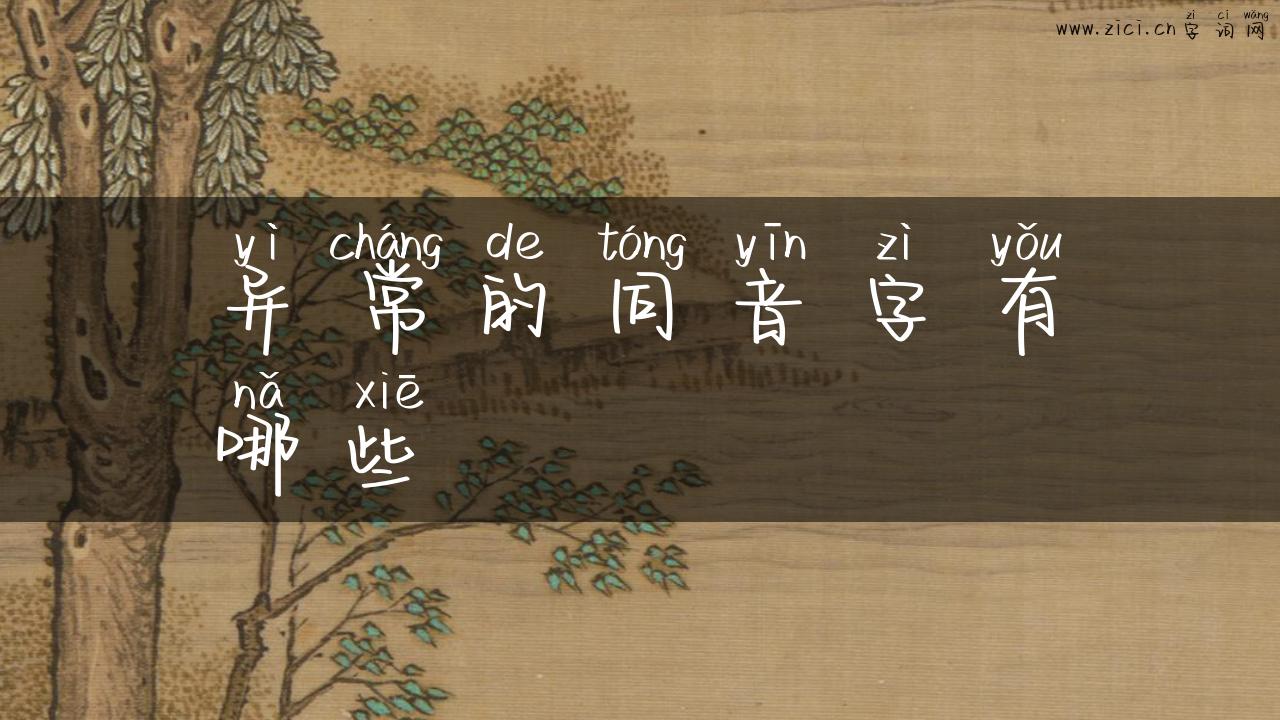 zì cí wǎng
www.zici.cn 字词网
yì cháng de tóng yīn zì yǒu
异常的同音字有
nǎ xiē
哪些